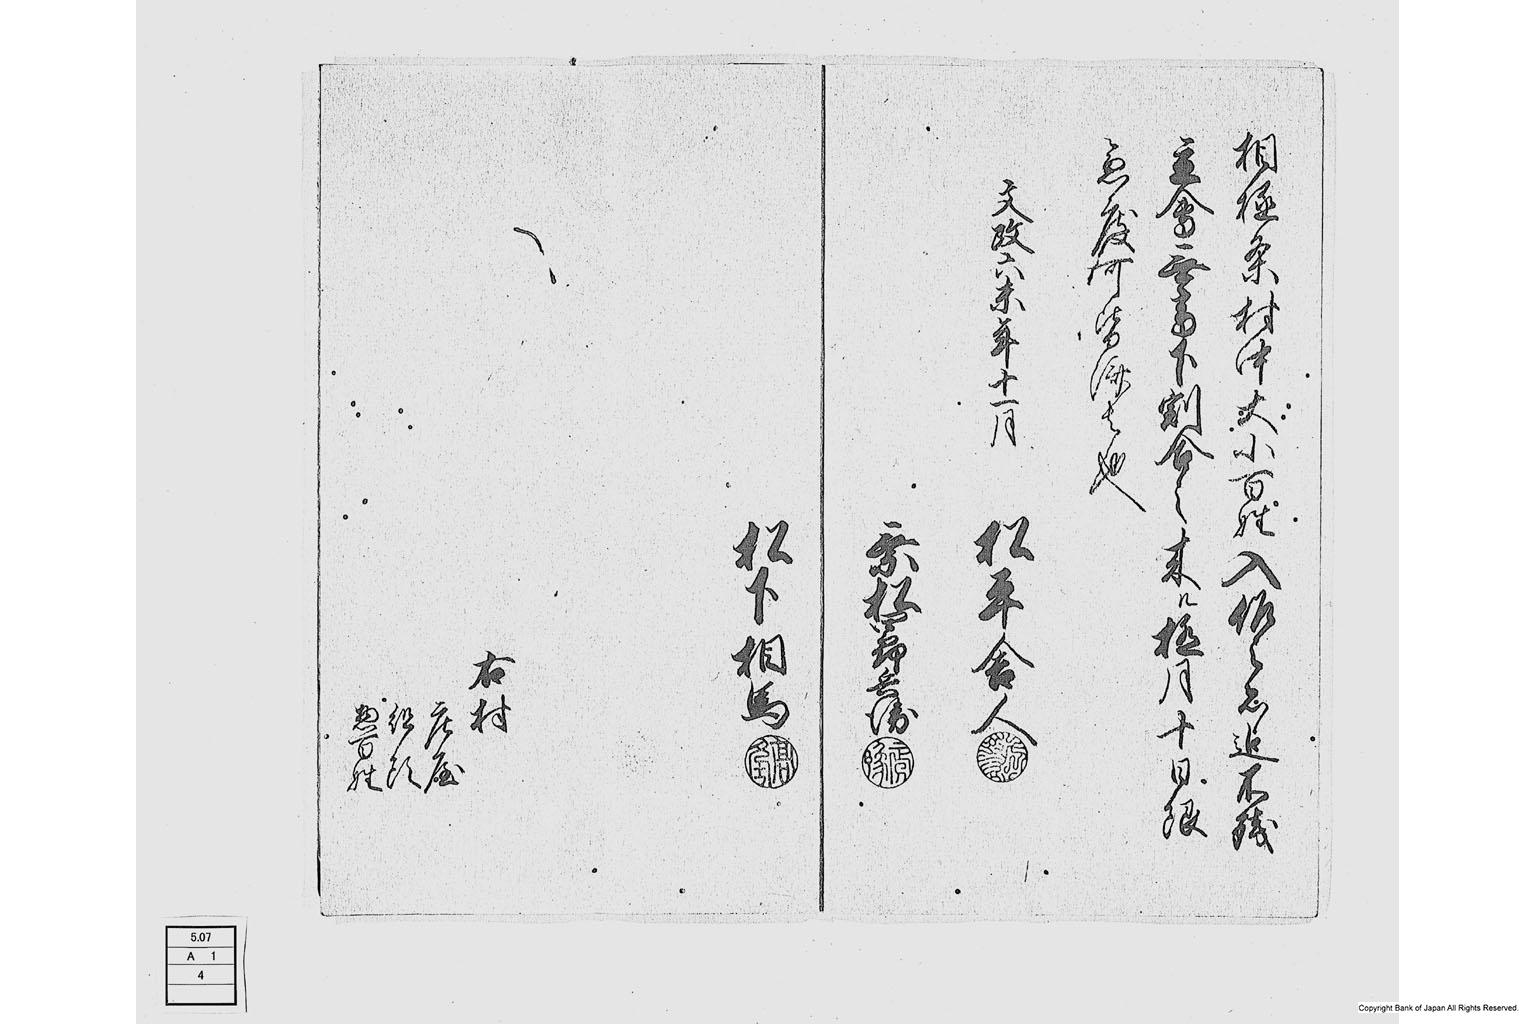 相極条村中大小百姓入作之者迄不残
立会無高下割合之来ル極月十日限
急度可皆済者也
文政六未年十一月
松平舎人
乗松
兵衛
松下相馬
右村
庄屋
組頭
惣百姓
5.07
A 1
4
Copyright Bank of Japan All Rights Reserved.